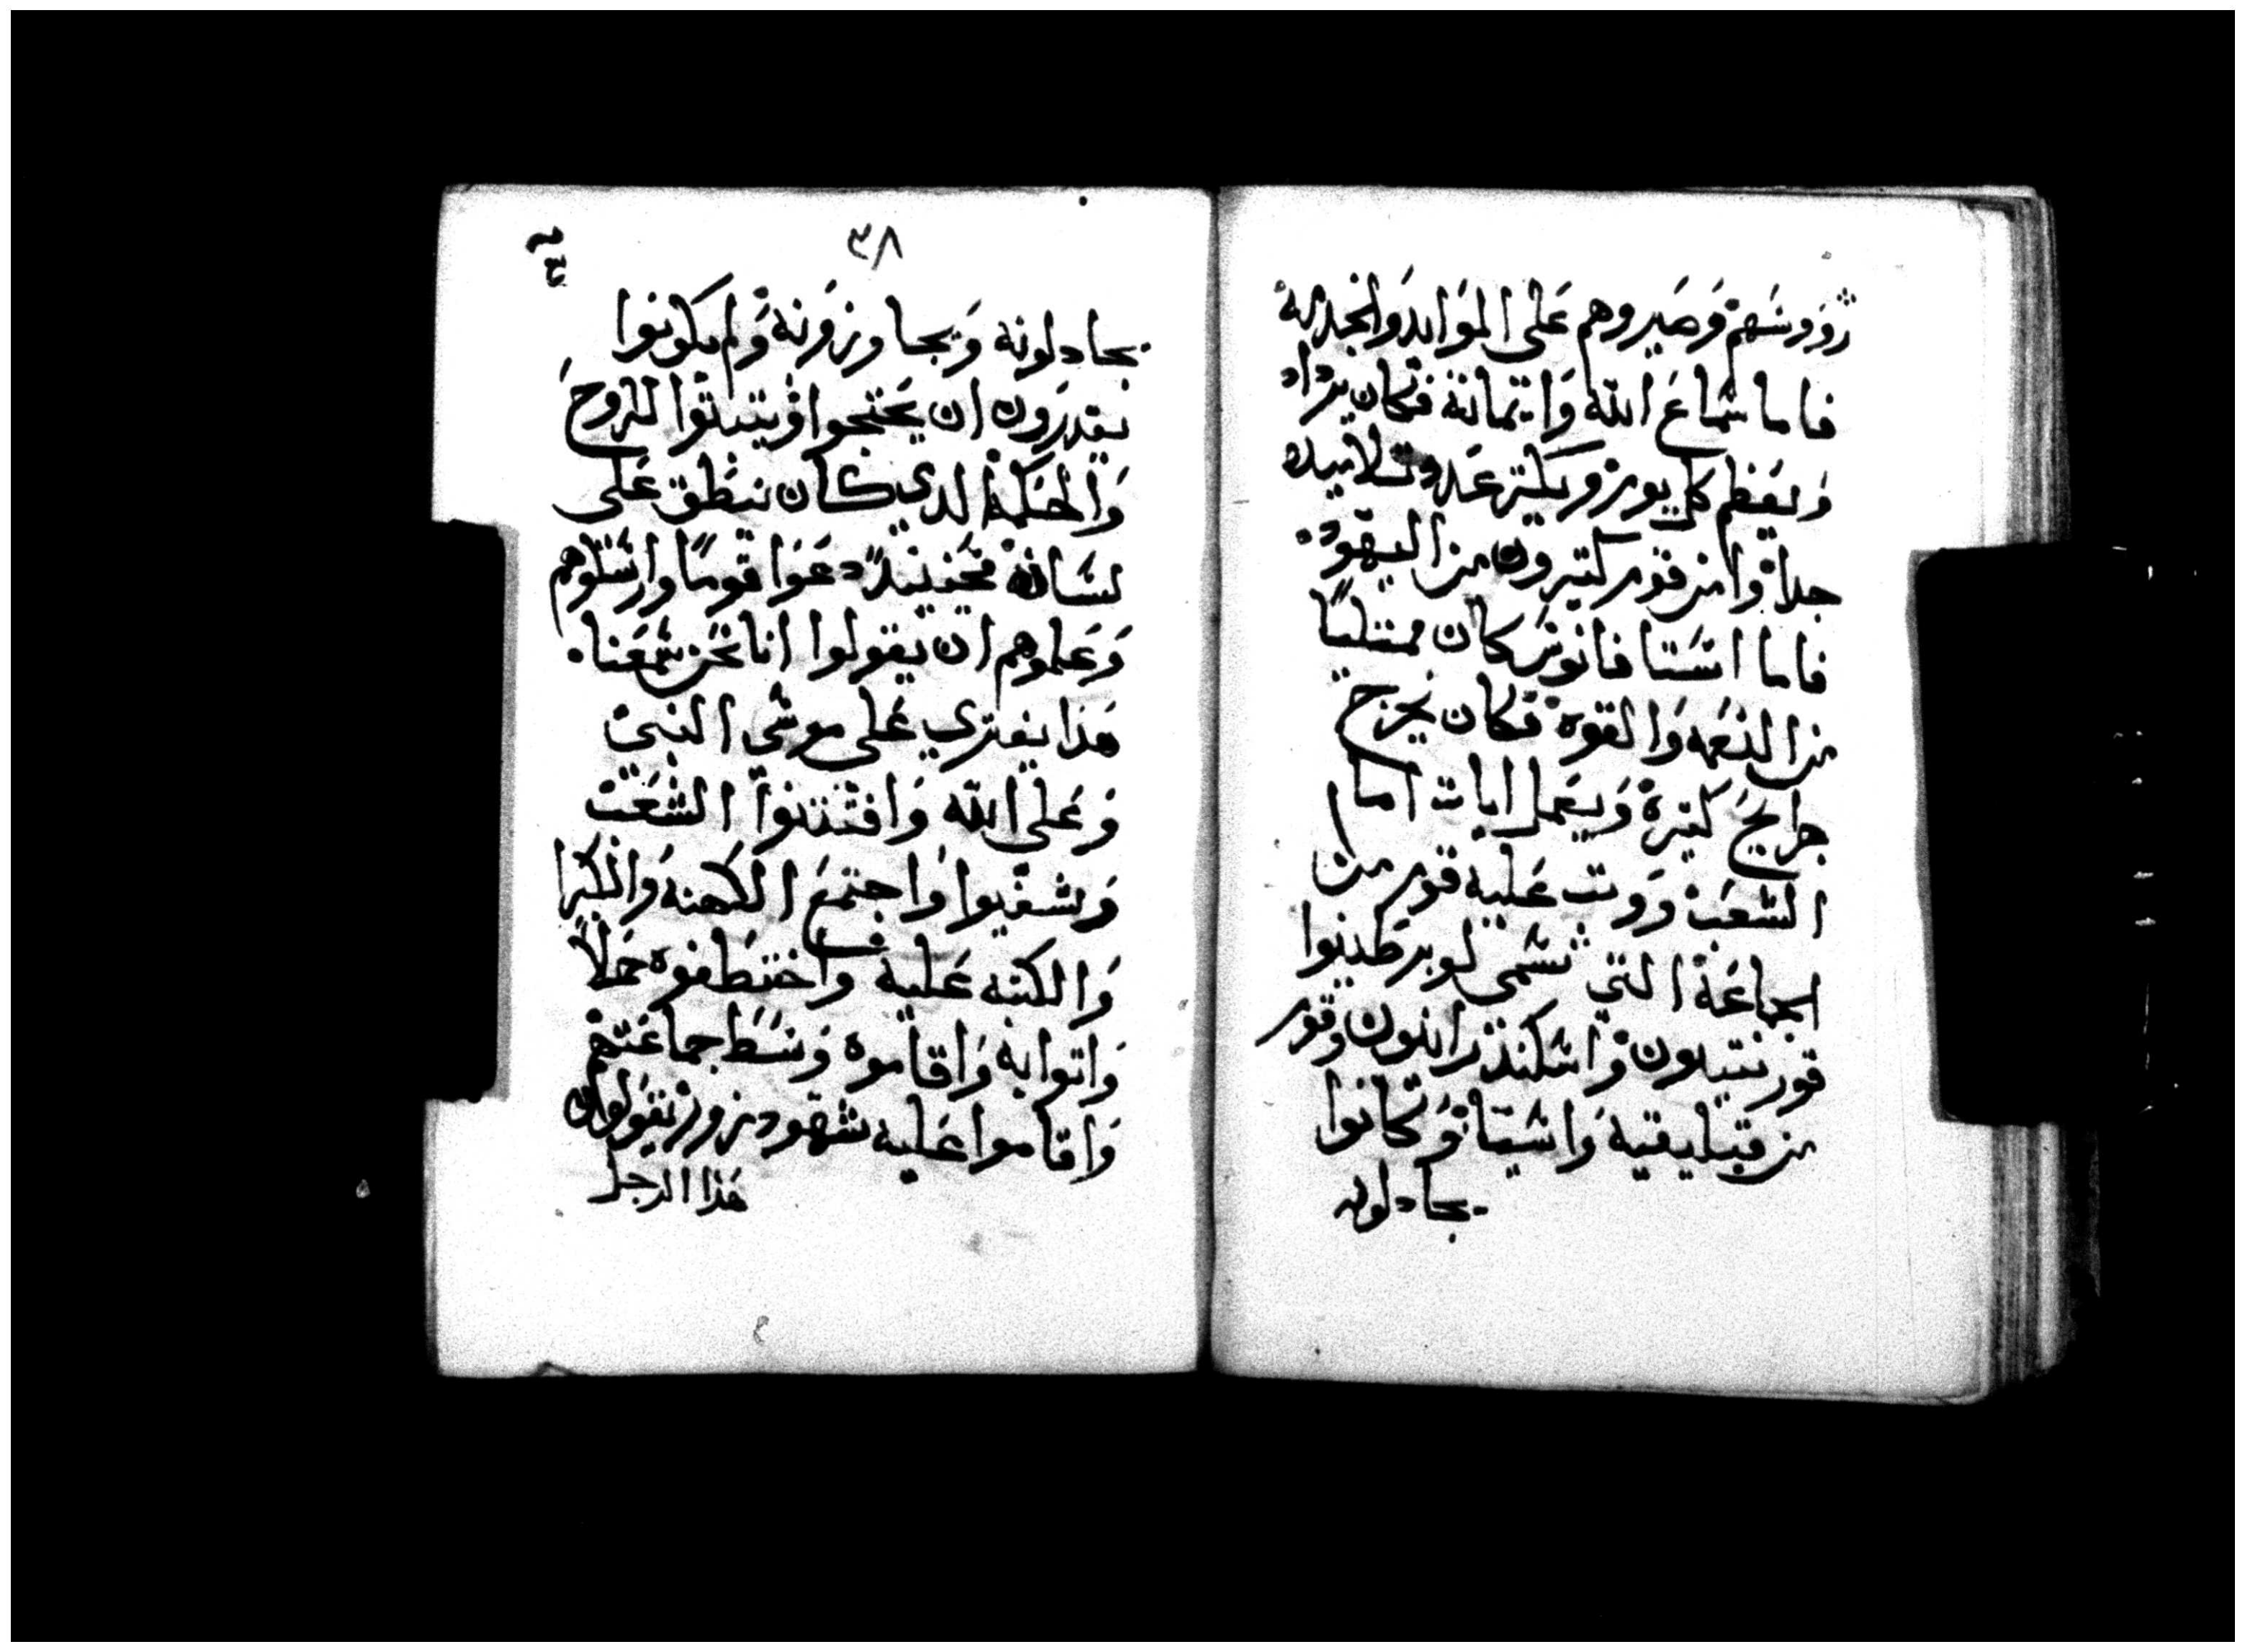 رووسهم وصيروهم على الموايد والخدمه
فاما سماع الله وايمانه فكان يزداد
ويعظم كل يوم ويكتر عدد تلاميده
جدا وامن قوم كتيرون من اليهود
فاما استافانوس كان ممتليا
من النعمه والقوه فكان يخرج
جرايح كتيره ويعمل ايات امام
الشعب ووتب عليه قوم من
الجماعة التي تسمى لوبرطينوا
قورنتيون واسكندرانيون وقوم
من قيليقيه واسيا وكانوا
يجادلونه
٣٨
يجادلونه ويجاوزونه ولم يكونوا
يقدرون ان يحتجوا ويتبتوا للروح
والحكمة الدي كان ينطق على
لسانه فحينيد دعوا قوما وارسلوهم
وعلموهم ان يقولوا انا نحن سمعنا
هذا يفتري على موسى النبي
وعلى الله وافتننوا الشعب
وشغبوا واجتمع الكهنه والكبرا
والكتبه عليه واختطفوه حملا
واتوا به واقاموه وسط جماعتهم
واقاموا عليه شهود زور يقولون
هذا الرجل